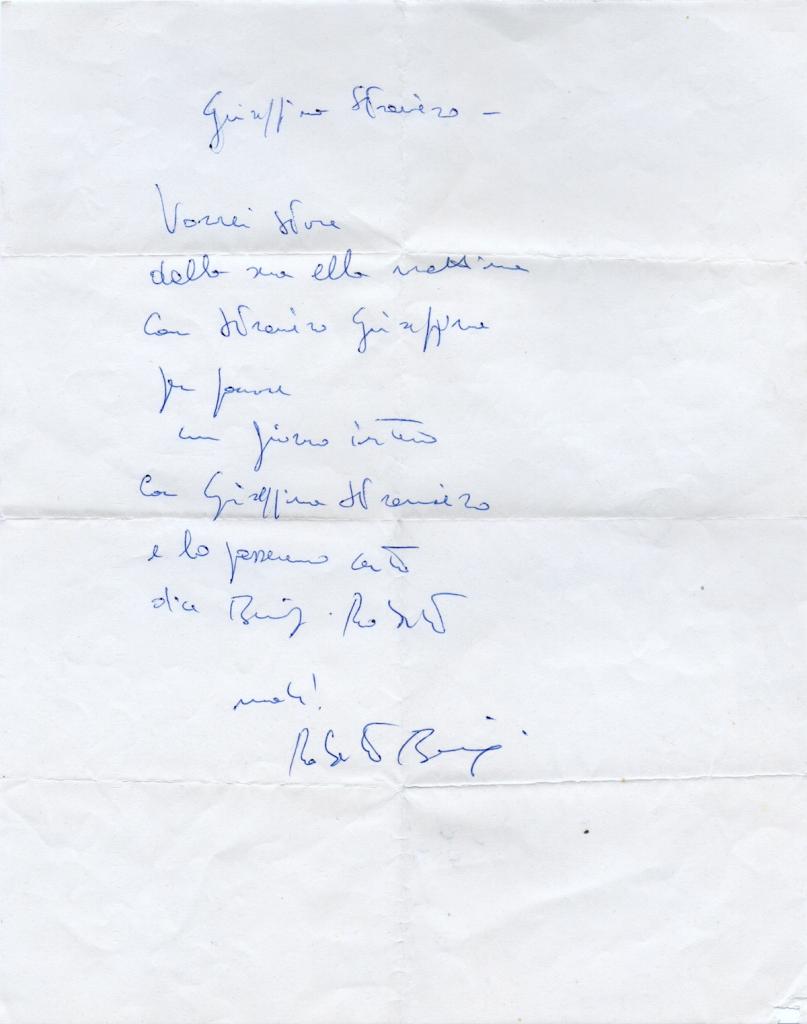 Giuseppina Straniero -
Vorrei stare
dalla sera alla mattina
Con Straniero Giuseppina
per passare
un giorno intero
Con Giuseppina Straniero
e lo passeremo certo
dice Benigni Roberto
Roberto Benigni